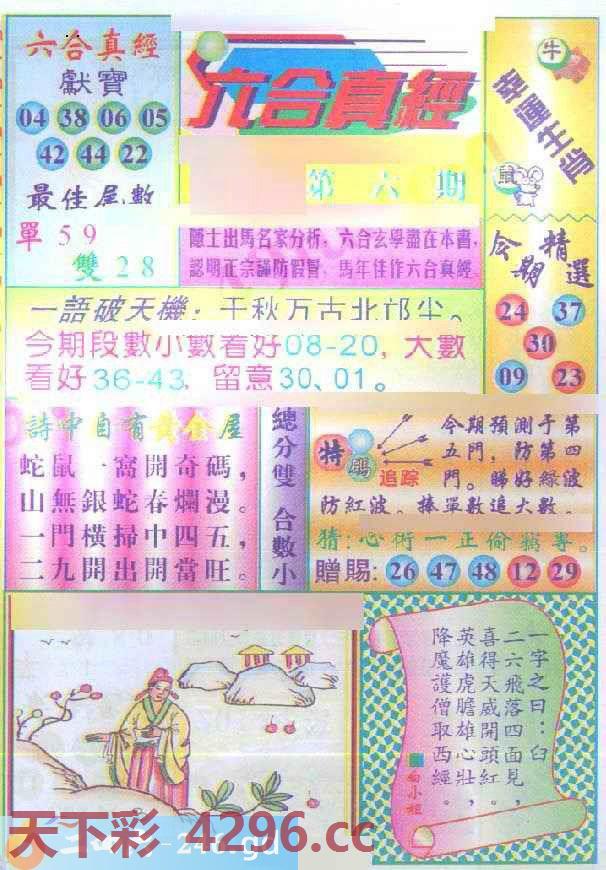 六合真經
獻寶
04 38 06 05
42 44 22
最佳尾數
單 59
雙 28
六合真經
第六期
隱士出馬名家分析，六合玄學盡在本書，
認明正宗謹防假冒，馬年佳作六合真經
牛
幸運生肖
鼠
今期精選
24 37
30
09 23
一語破天機：千秋万古北邙尘。
今期段數小數看好08-20，大數
看好36-43，留意30、01。
詩中自有黃金屋
蛇鼠一窩開奇碼，
山無銀蛇春爛漫。
一門橫掃中四五，
二九開出開當旺。
總分雙 合數小
特碼
追踪
今期預測于第
五門，防第四
門。睇好綠波
防紅波。捧單數追大數。
猜：心術一正偷竊專。
贈賜：26 47 48 12 29
一字之曰：臼
二六飛落四面見，
喜得天威開頭紅。
英雄虎膽雄心壯，
降魔護僧取西經。
白小姐
天下彩 4296.cc